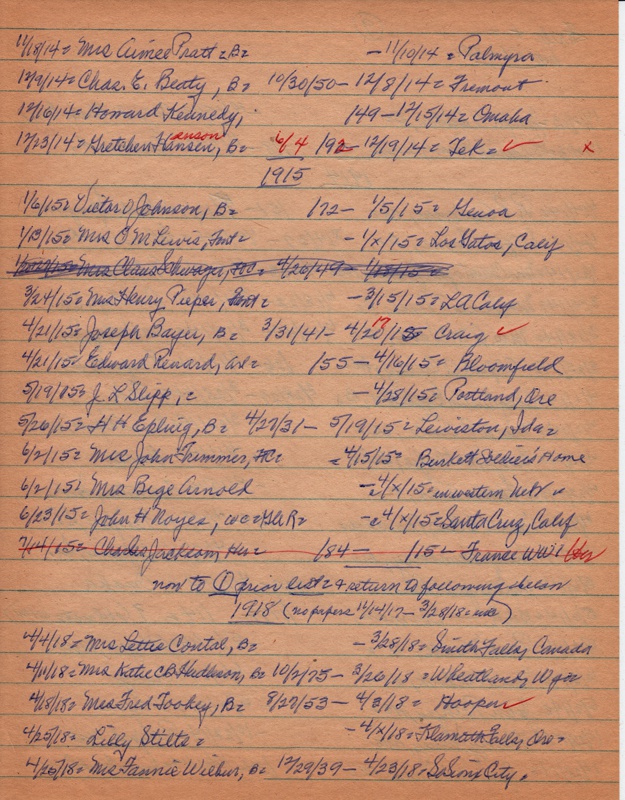 11/18/14 = Mrs Aimee Pratt = B = - 11/10/14 = Palmyra
12/9/14 = Chas. E. Beaty, B = 10/30/50 - 12/8/14 = Fremont
12/16/14 = Howard Kennedy, 149 - 12/15/14 = Omaha
anson
12/23/14 = Gretchen Hansen, B = 6/4 192 - 12/19/14 = Tek = ✓ x
1915
1/6/15 = Victor O Johnson, B = 172 - 1/5/15 = Genoa
1/13/15 = Mrs O M Lewis, Font = - 1/x/15 = Los Gatos, Calif
Mrs Claus Schwager, 4/20/49 -
3/24/15 = Mrs Henry Pieper, Font = - 3/15/15 = LA Calif
4/21/15 = Joseph Bayer, B = 3/31/41 - 4/20/15 17 Craig ✓
4/21/15 = Edward Renard, 155 - 4/16/15 = Bloomfield
5/19/15 = J. L Slipp, = - 4/28/15 = Portland, Ore
5/26/15 = H H Eplug, B = 4/27/31 - 5/19/15 = Lewiston, Ida =
6/2/15 = Mrs John Trimmer, = 4/15/15 = Burkett Soldier's Home
6/2/15 = Mrs Bige Arnold - 4/x/15 = in western Nebr =
6/23/15 = John H Noyes, - 4/x/15 = Santa Cruz, Calif
7/14/15 = Charles Jackson Her = 184 - 115 = France WWI Her
now to O prior list = & return to following below
1918 (no papers 11/14/17 - 3/28/18 = )
4/4/18 = Mrs Lettie Contal, B = - 3/28/18 = Smith Falls, Canada
4/11/18 = Mrs Katie CB Hudkson, B = 10/2/75 - 3/26/18 = Wheatland, Wyo =
4/18/18 = Mrs Fred Tookey, B = 8/27/53 - 4/8/18 = Hooper ✓
4/25/18 = Lilly Stilts = - 4/x/18 = Klamath Falls, Ore =
4/25/18 = Mrs Fannie Wilbur, B = 12/29/39 - 4/23/18 = So Sioux City =